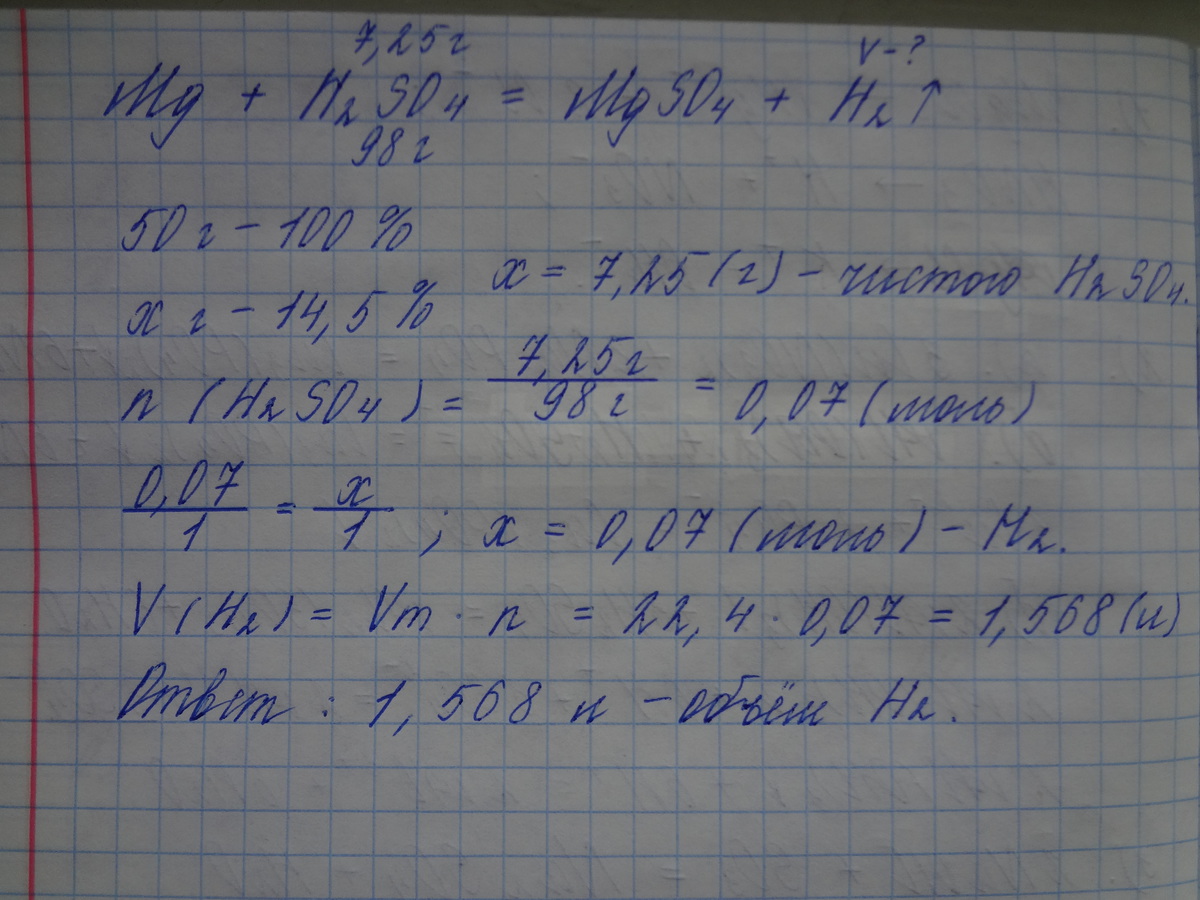 7,25 г V-?
Mg + H₂SO₄ = MgSO₄ + H₂↑
98 г
50 г - 100 %
x = 7,25 (г) - чистого H₂SO₄.
x г - 14,5 %
n (H₂SO₄) = 7,25 г / 98 г = 0,07 (моль)
0,07 / 1 = x / 1 ; x = 0,07 (моль) - H₂.
V (H₂) = Vm · n = 22,4 · 0,07 = 1,568 (л)
Ответ : 1,568 л - объём H₂.